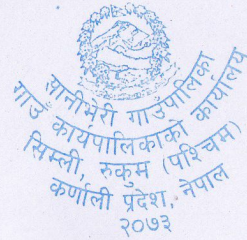 सानीभेरी गाउँपालिका
गाउँ कार्यपालिकाको कार्यालय
सिम्ली, रुकुम (पश्चिम)
कर्णाली प्रदेश, नेपाल
२०७३